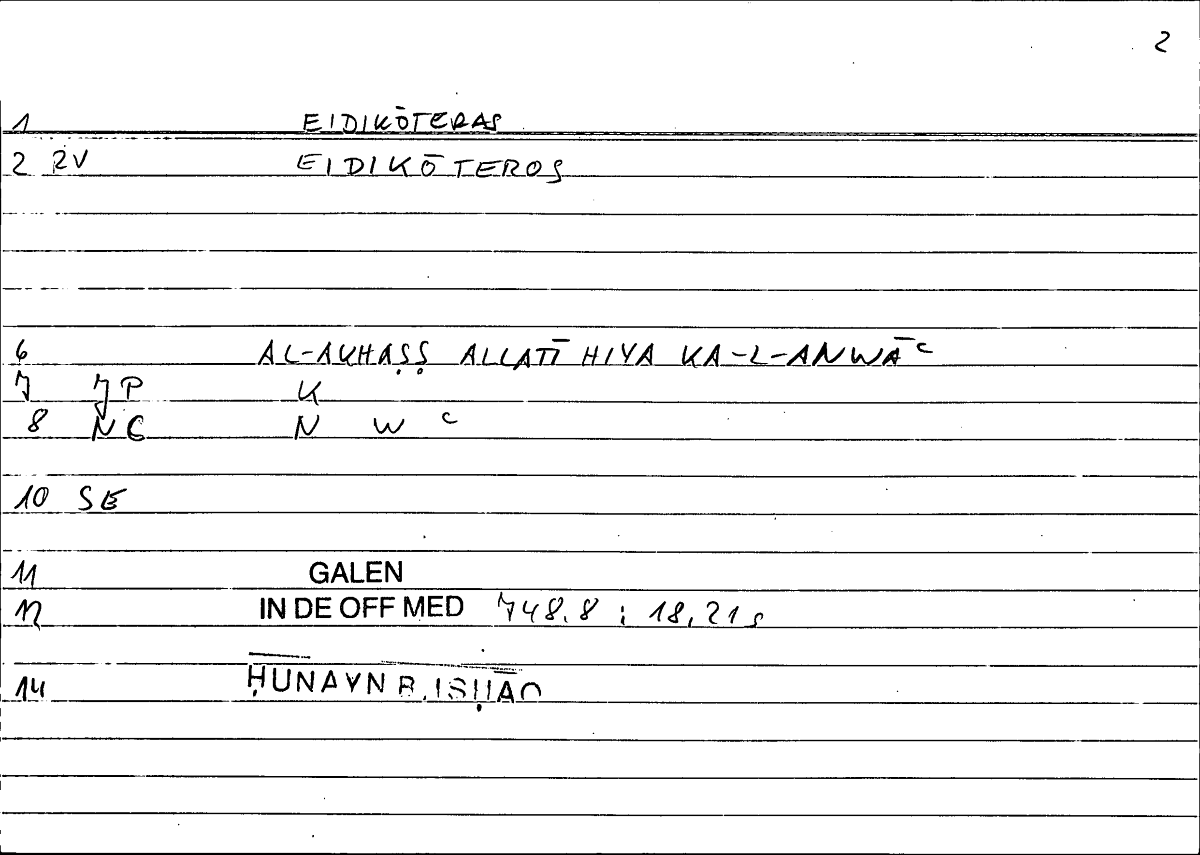 2
1 EIDIKŌTERAS
2 RV EIDIKŌTEROS
6 AL-AKHAṢṢ ALLATĪ HIYA KA-L-ANWĀʿ
7 JP K
8 NG N W ʿ
10 SE
11 GALEN
12 IN DE OFF MED 748.8 ; 18,21s
14 ḤUNAYN B. ISḤĀQ